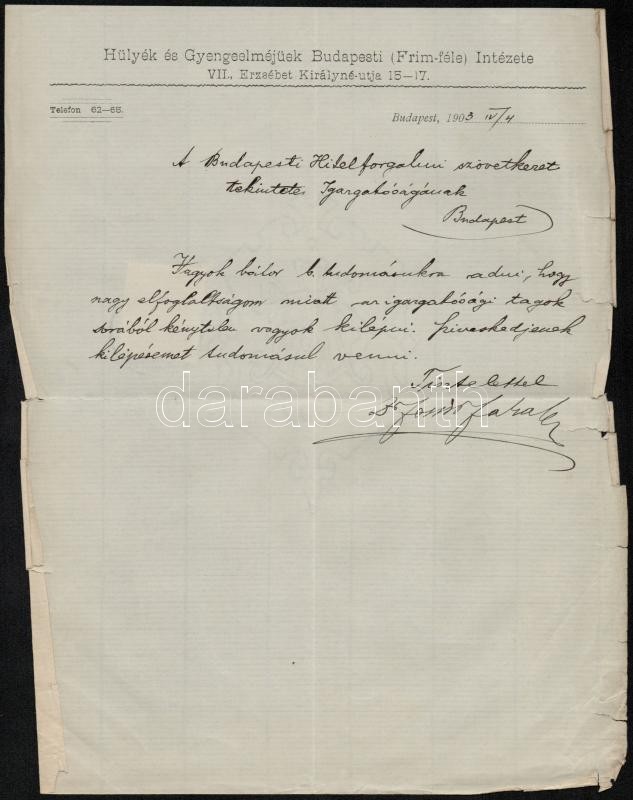 Hülyék és Gyengeelméjüek Budapesti (Frim-féle) Intézete
VII., Erzsébet Királyné-utja 15–17.
Telefon 62–65.
Budapest, 1903 IV/4
A Budapesti Hitelforgalmi szövetkezet
tekintetes Igazgatóságának
Budapest
Vagyok bátor b. tudomásukra adni, hogy
nagy elfoglaltságom miatt az igazgatósági tagok
sorából kénytelen vagyok kilépni. Sziveskedjenek
kilépésemet tudomásul venni.
Tisztelettel
Dr
darabanth
auctions co. ltd.